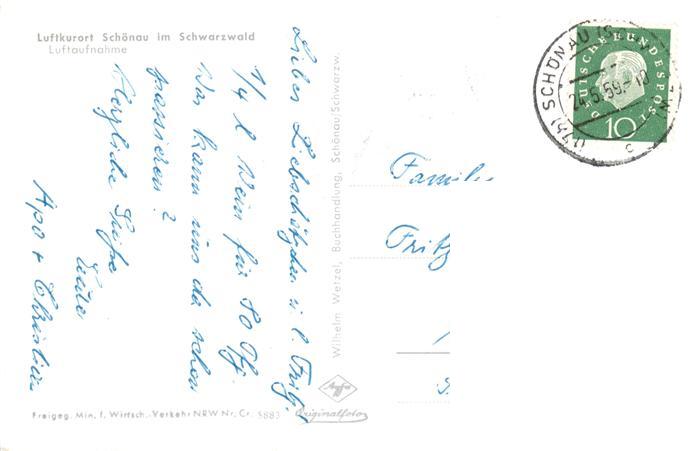 Luftkurort Schönau im Schwarzwald
Luftaufnahme
Liebes Liebschätzchen u. l. Fritz!
1/4 l Wein für 80 Pfg.
Was kann uns da schon
passieren?
Herzliche Grüße
Eure
Apa + Christian
Freigeg. Min. f. Wirtsch.-Verkehr NRW Nr. Cr. 5883
Agfa
Originalfoto
Wilhelm Wetzel, Buchhandlung, Schönau/Schwarzw.
Familie
Fritz
SCHÖNAU (Sch
24.5.59.-10
DEUTSCHE BUNDESPOST
10